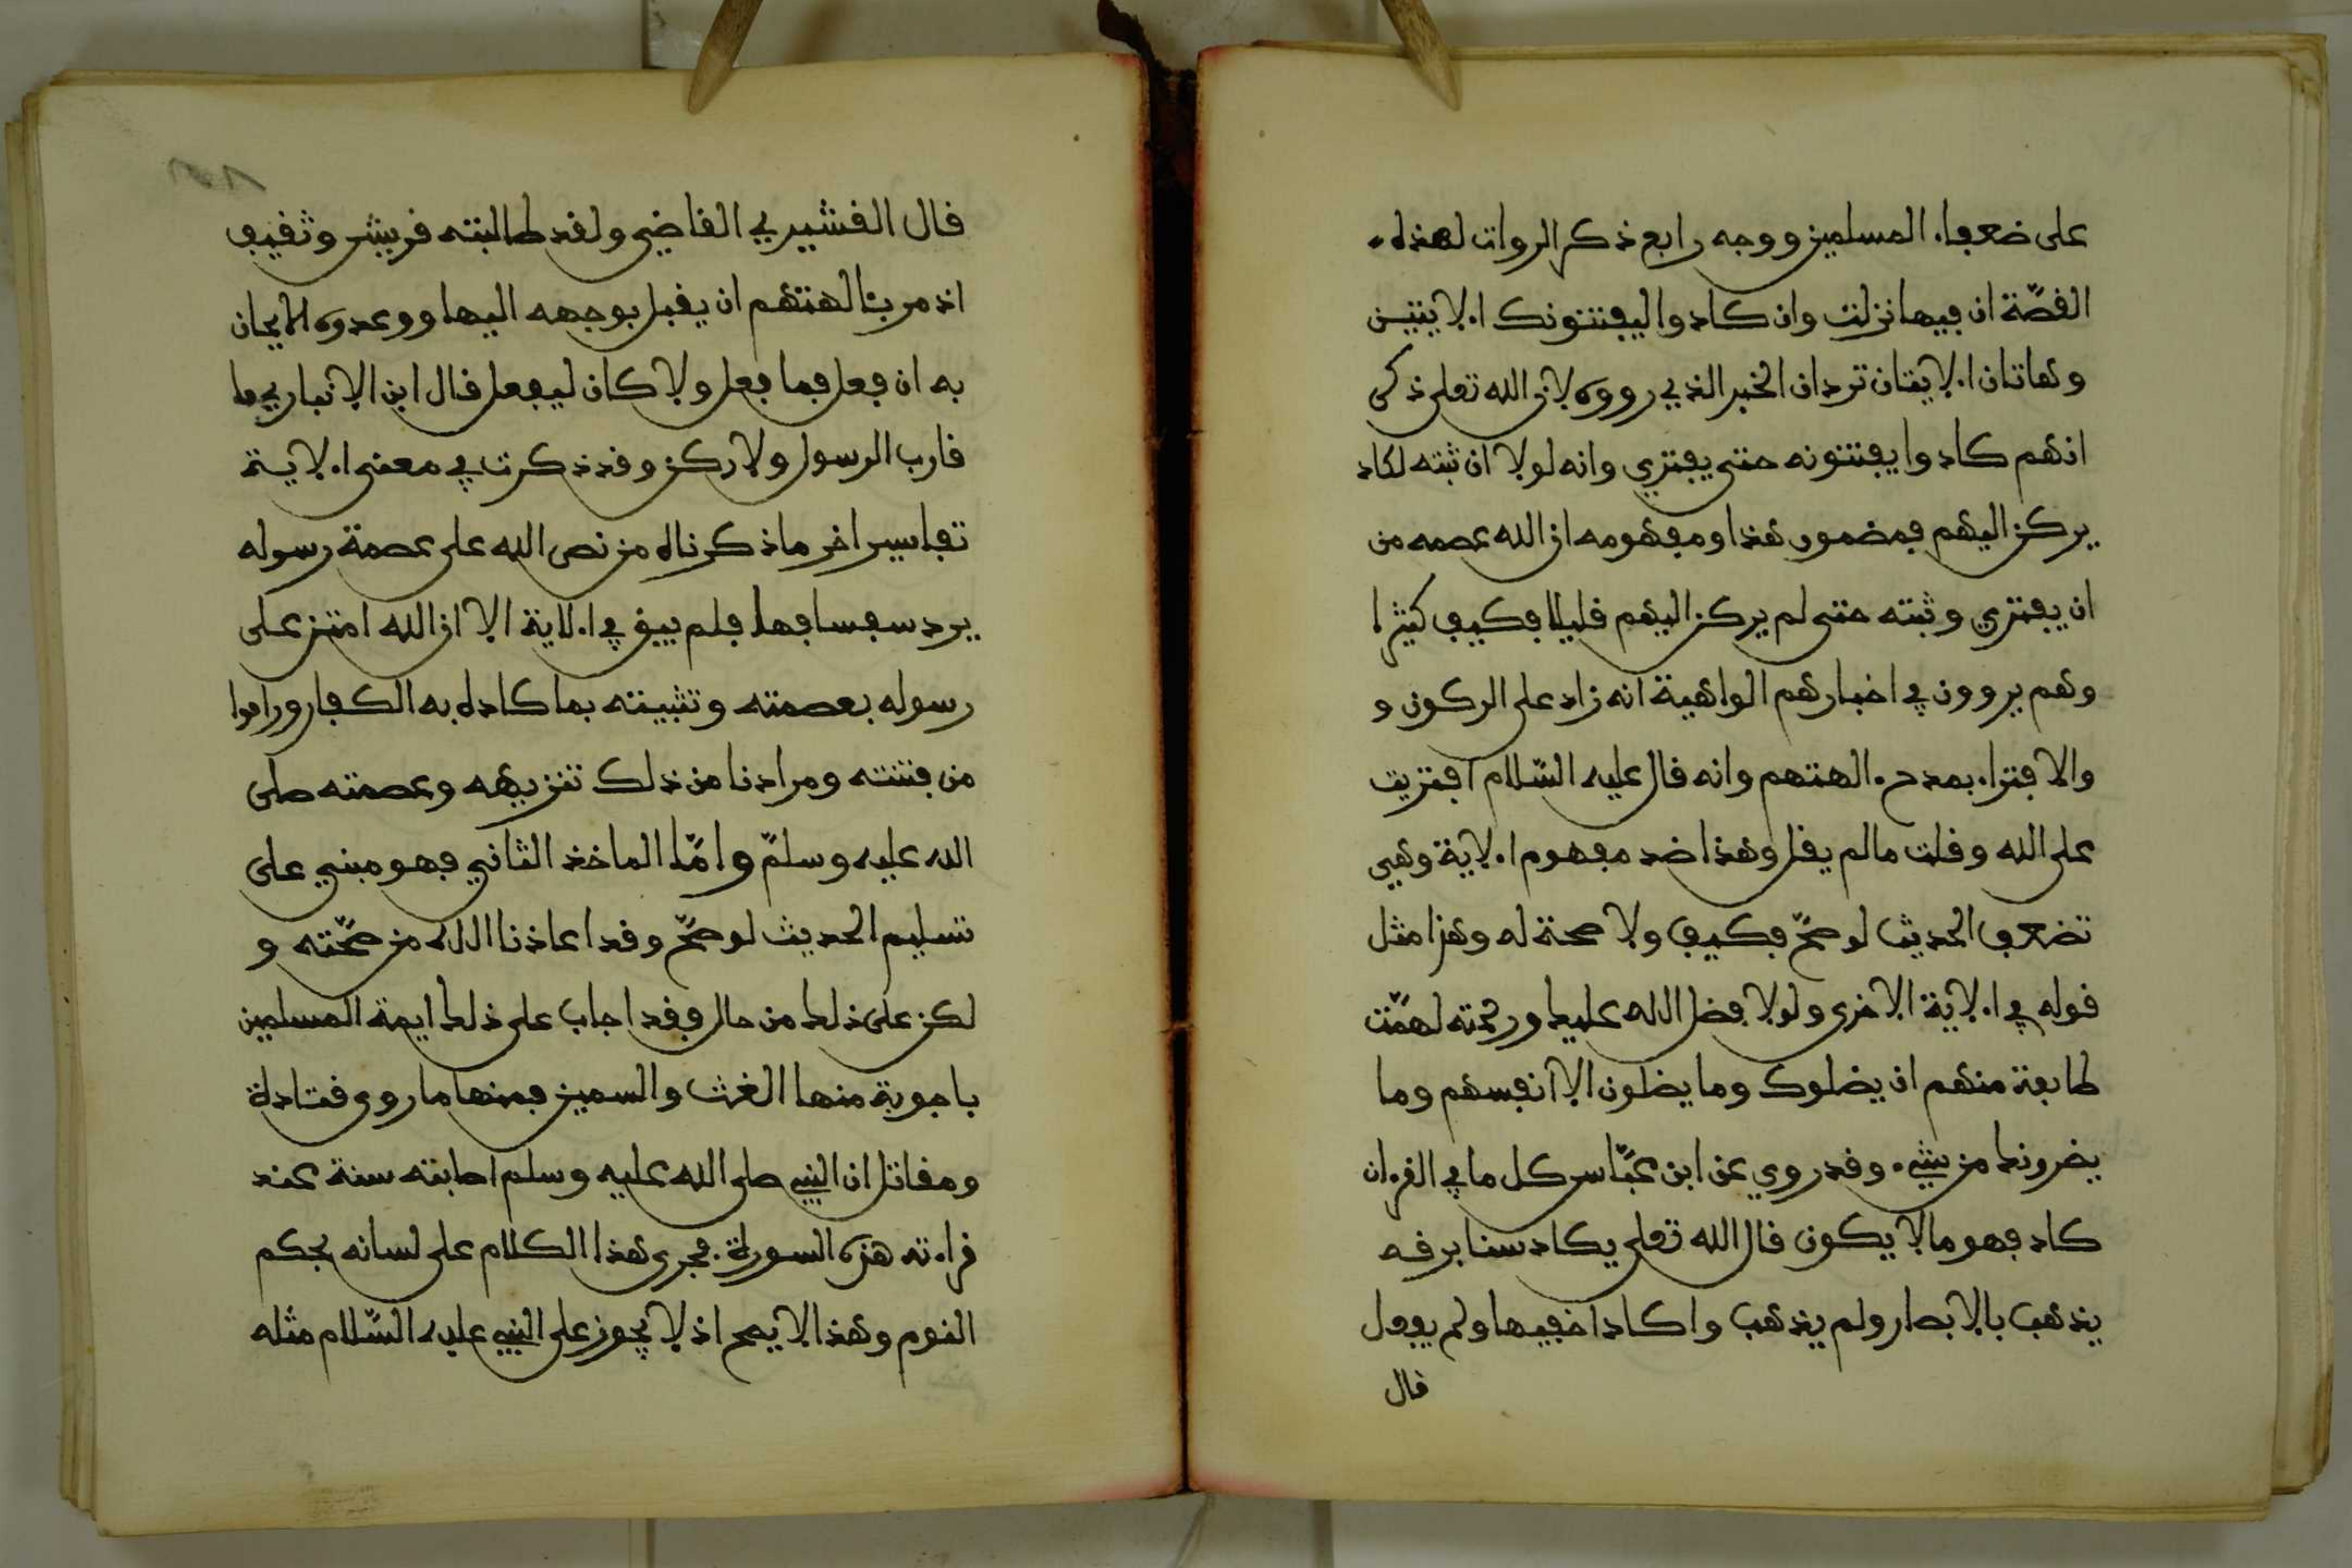 على ضعفاء المسلمين ووجه رابع ذكر الروات لهذه
القصّة ان فيها نزلت وان كادوا ليفتنونك الايتين
وهاتان الايتان تردان الخبر الذي رووه لان الله تعلى ذكر
انهم كادوا يفتنونه حتى يفتري وانه لولا ان ثبته لكاد
يركن اليهم فمضمون هذا ومفهومه ان الله عصمه من
ان يفتري وثبته حتى لم يركن اليهم قليلا فكيف كثيرا
وهم يروون في اخبارهم الواهية انه زاد على الركون و
والافتراء بمدح ءالهتهم وانه قال عليه السّلام افتريت
على الله وقلت مالم يقل وهذا ضد مفهوم الاية وهي
تضعف الحديث لو صحّ فكيف ولا صحة له وهذا مثل
قوله في الاية الاخرى ولولا فضل الله عليك ورحمته لهمّت
طايفة منهم ان يضلوك وما يضلون الا انفسهم وما
يضرونك من شيء وقد روي عن ابن عبّاس كل ما في القرءان
كاد فهو مالا يكون قال الله تعلى يكاد سنا برقه
يذهب بالابصار ولم يذهب واكاد اخفيها ولم يفعل
قال
قال القشيري القاضي ولقد طالبته قريش وثقيف
اذ مر بئالهتهم ان يقبل بوجهه اليها ووعدوه الايمان
به ان فعل فما فعل ولا كان ليفعل قال ابن الانباري ما
قارب الرسول ولا ركن وقد ذكرت في معنى الاية
تفاسير اخر ماذكرناه من نص الله على عصمة رسوله
يرد سفسافها فلم يبق في الاية الا ان الله امتن على
رسوله بعصمته وتثبيته بما كاده به الكفار وراموا
من فتنته ومرادنا من ذلك تنزيهه وعصمته صلى
الله عليه وسلمّ وامّا الماخذ الثاني فهو مبني على
تسليم الحديث لو صحّ وقد اعاذنا الله من صحّته و
لكن على ذلك من حال فقد اجاب على ذلك ايمة المسلمين
باجوبة منها الغث والسمين فمنها ما روى قتادة
ومقاتل ان النبي صلى الله عليه وسلم اصابته سنة عند
قراءته هذه السورة فجرى هذا الكلام على لسانه بحكم
النوم وهذا لا يصح اذ لا يجوز على النبي عليه السّلام مثله